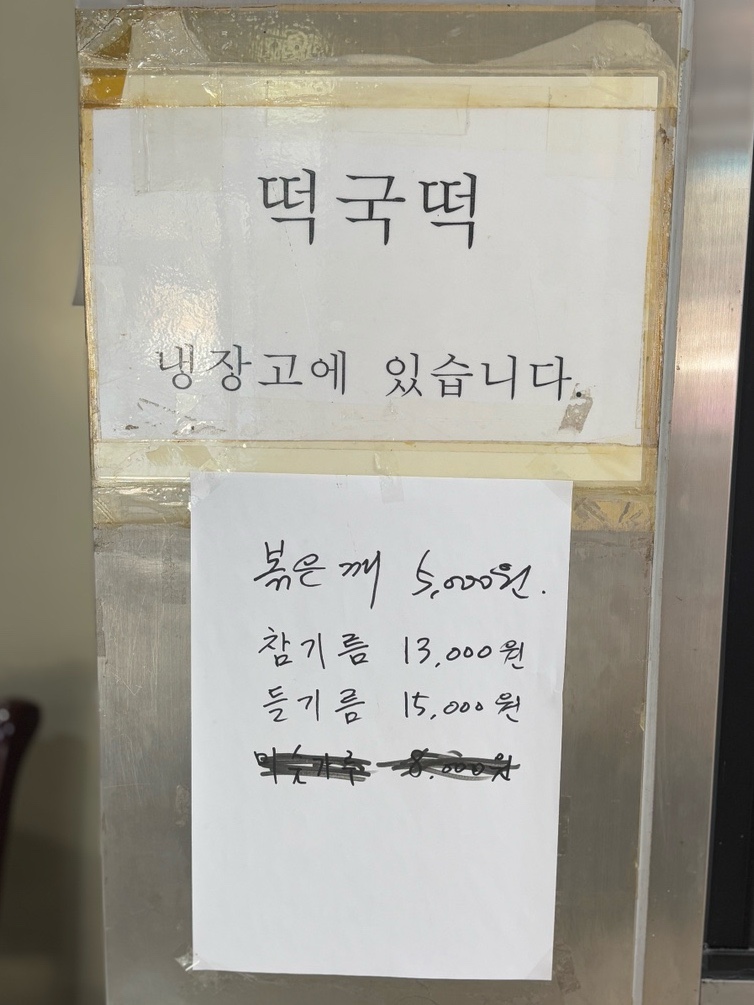 떡국떡
냉장고에 있습니다.
볶은깨 5,000원.
참기름 13,000원
들기름 15,000원
미숫가루 8,000원